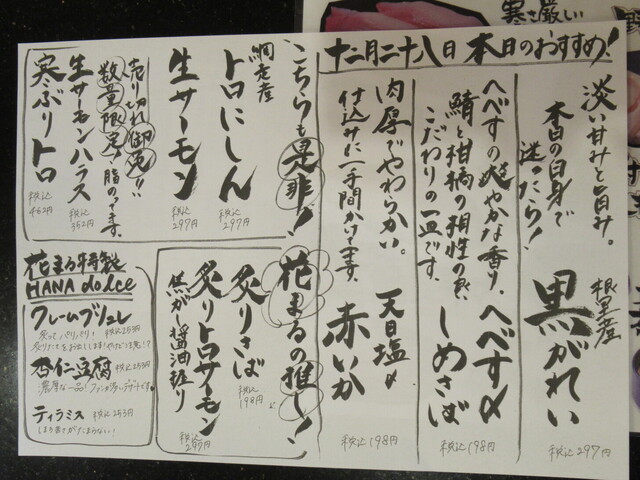 十二月二十八日 本日のおすすめ！
淡い甘みと旨み。
本日の白身で
迷ったら！
根室産
黒がれい
税込297円
へべすの爽やかな香り、
鯖と柑橘の相性の良い
こだわりの一皿です。
へべす〆
しめさば
税込198円
肉厚でやわらかい。
仕込みに一手間かけてます。
天日塩〆
赤いか
税込198円
こちらも是非！
網走産
トロにしん
税込297円
生サーモン
税込297円
売り切れ御免!!
数量限定
脂のってます。
生サーモンハラス
税込352円
寒ぶりトロ
税込462円
花まるの推し！
炙りさば
税込198円
炙りトロサーモン
焦がし醤油香り
税込297円
花まる特製
HANA dolce
クレームブリュレ
炙ってパリパリ！ 税込253円
杏仁豆腐 税込253円
ティラミス 税込253円
ほろ苦さがたまらない！
寒さ厳しい